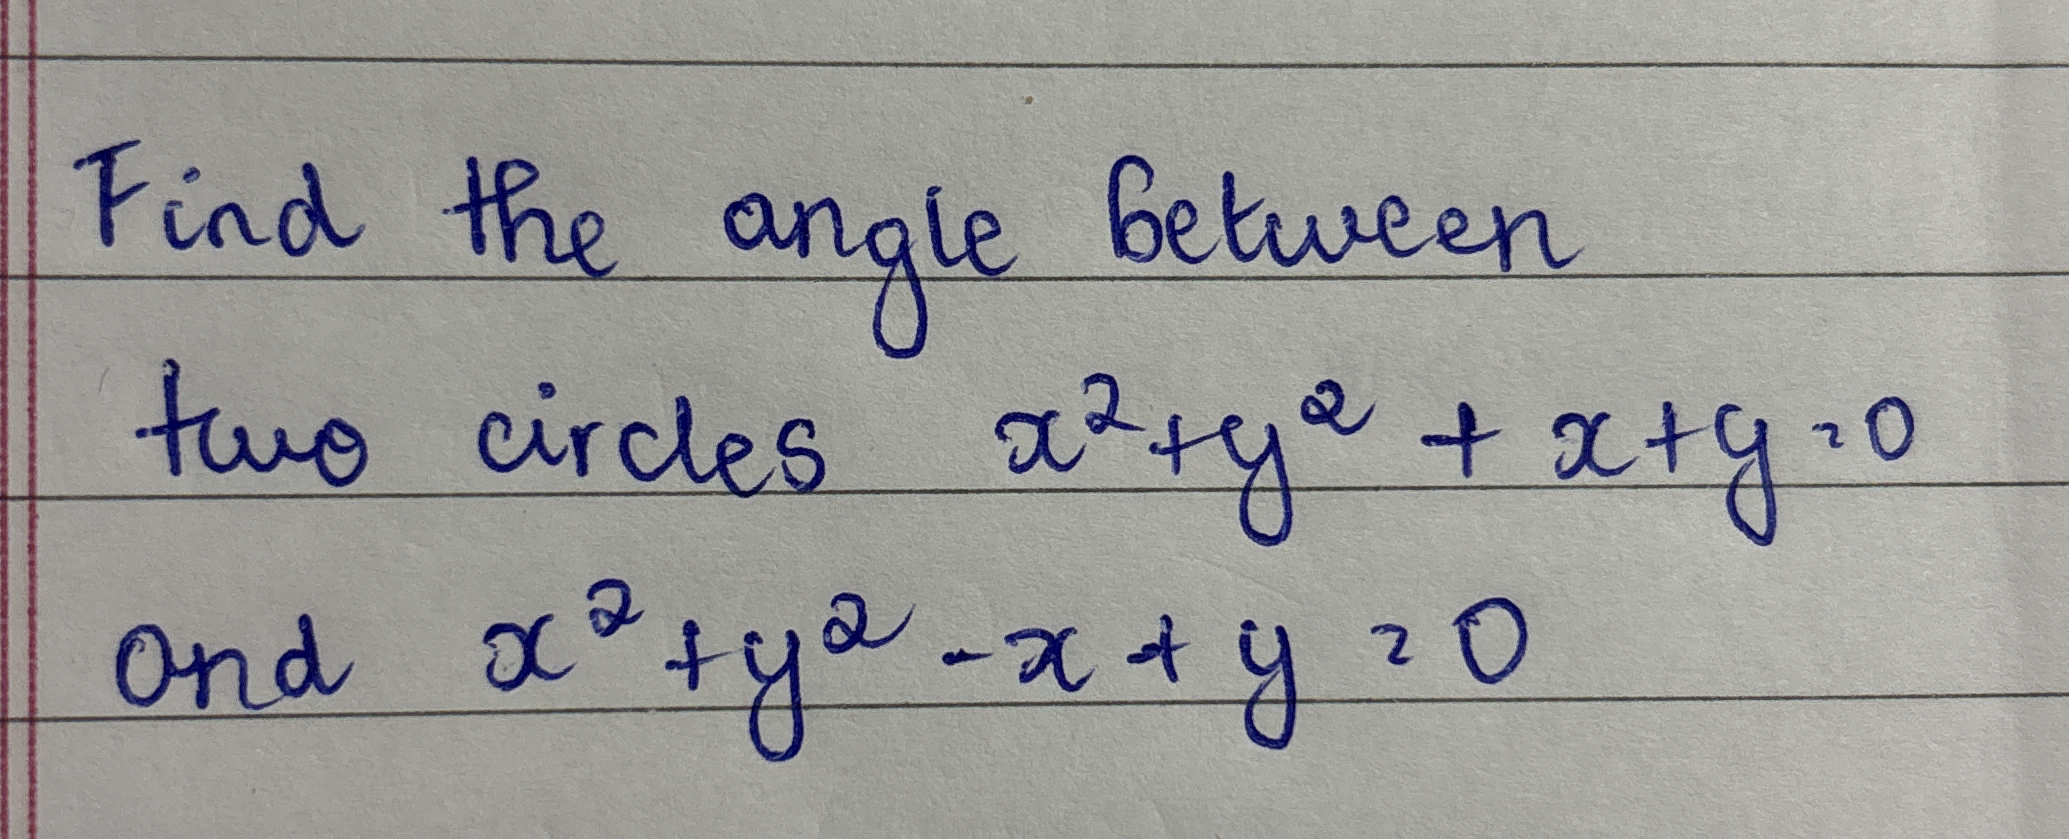 Find the angle between
two circles x² + y² + x + y = 0
and x² + y² - x + y = 0